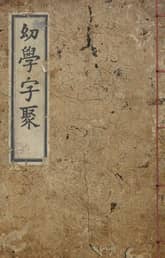 幼學字聚